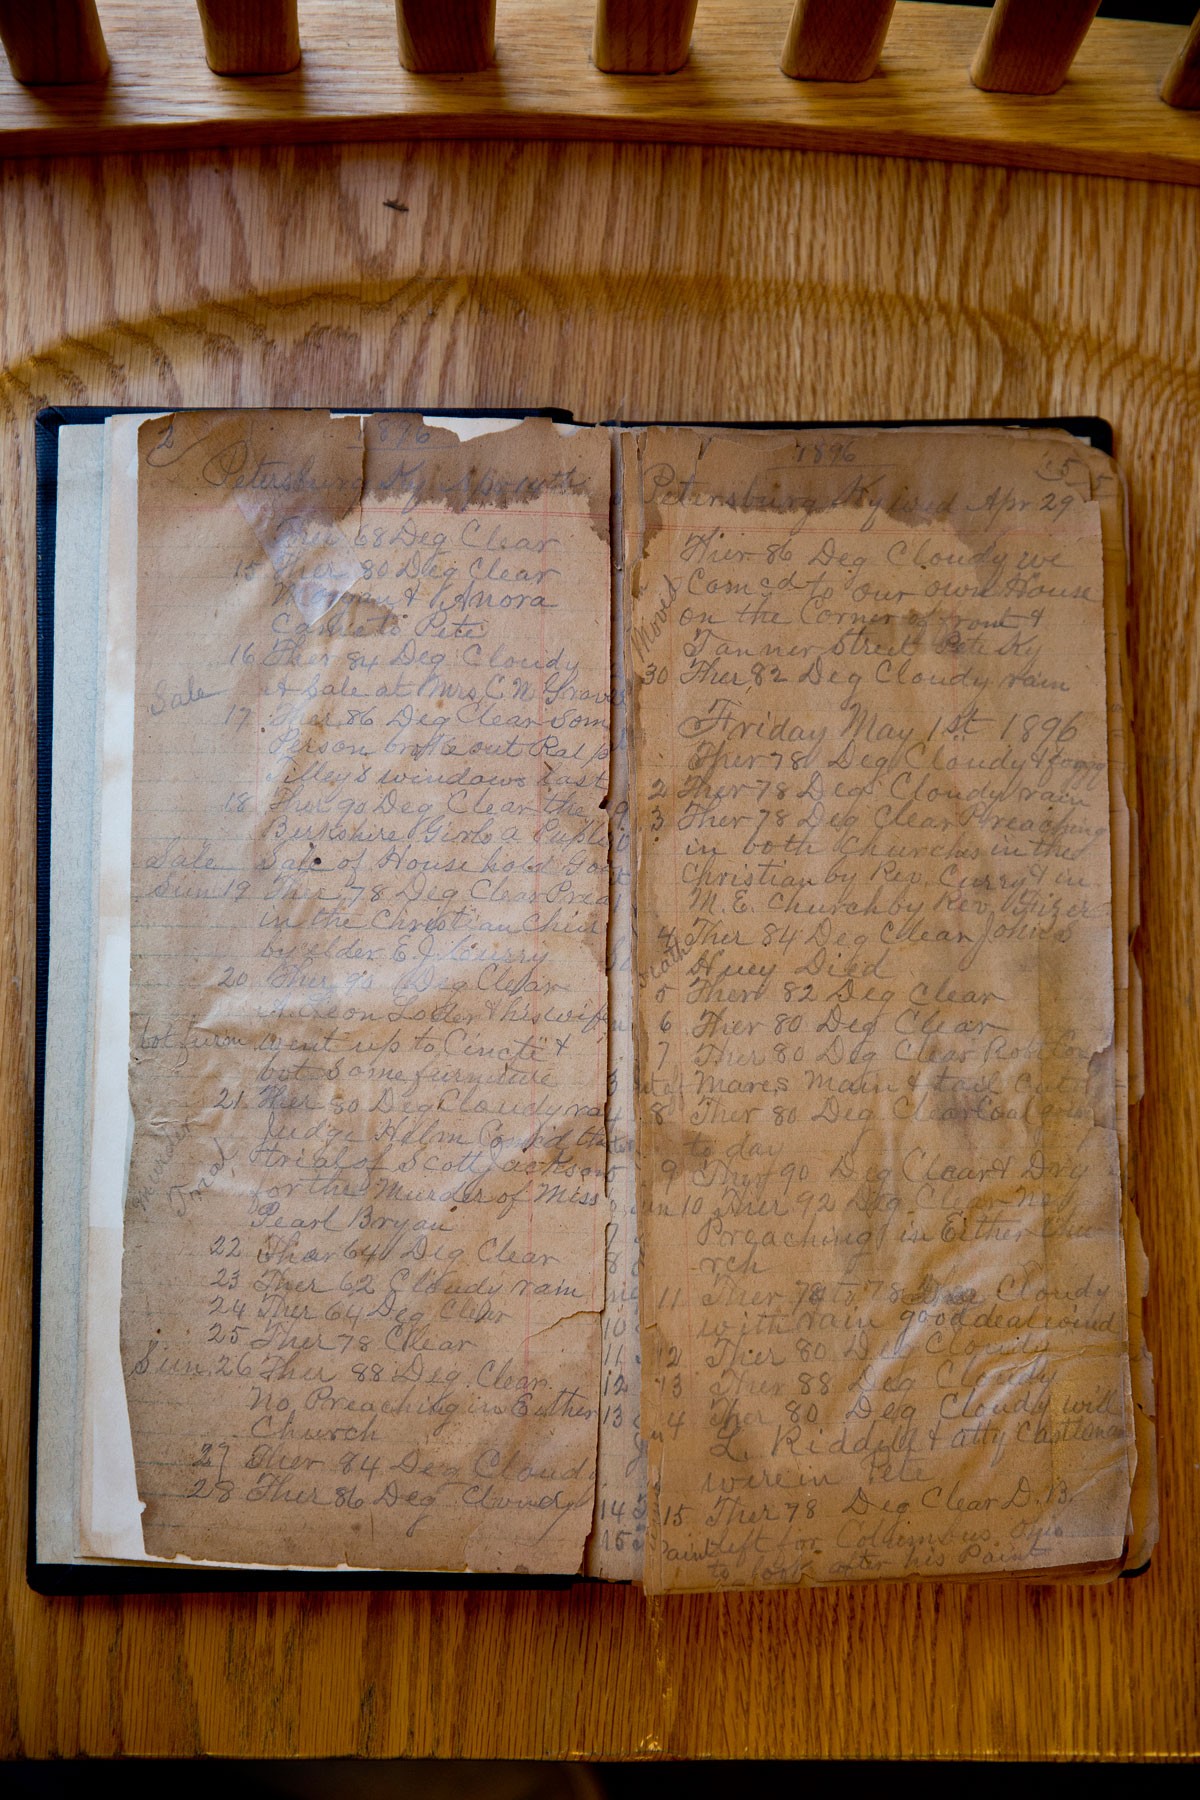 2
1896
Petersburg Ky Apr 14th
Ther 68 Deg Clear
15 Ther 80 Deg Clear
& Anora
Came to Pete
16 Ther 84 Deg Cloudy
Sale A Sale at Mrs. C. W. Graves
17 Ther 86 Deg Clear Som
Person broke out Ralp
Tilleys windows last
18 Ther 90 Deg Clear the
Berkshire Girls a Public
Sale Sale of House hold Goo
Sun 19 Ther 78 Deg Clear Prea
in the Christian Chur
by elder E. J. Curry
20 Ther 90 Deg Clear
Leon Loder & his wife
bot furn went up to Cincti &
bot Some furniture
21 Ther 80 Deg Cloudy ra
Judge Helm the
trial of Scott Jackson
Murder
Trial
for the Murder of Miss
Pearl Bryan
22 Ther 64 Deg Clear
23 Ther 62 Cloudy rain
24 Ther 64 Deg Clear
25 Ther 78 Clear
Sun. 26 Ther 88 Deg. Clear.
No Preaching in Either
Church
27 Ther 84 Deg Cloudy
28 Ther 86 Deg Cloudy
1896
5
Petersburg Ky wed Apr 29
Ther 86 Deg Cloudy we
Moved
to our own House
on the Corner of Front &
Tanner Street Pete Ky
30 Ther 82 Deg Cloudy rain
Friday May 1st 1896
Ther 78 Deg Cloudy & foggy
2 Ther 78 Deg Cloudy rain
3 Ther 78 Deg Clear Preaching
in both Churches in the
Christian by Rev. Curry & in
M. E. Church by Rev.
4 Ther 84 Deg Clear John S
Death Huey Died
5 Ther 82 Deg Clear
6 Ther 80 Deg Clear
7 Ther 80 Deg Clear Robt
Mares Main & tail Cut
8 Ther 80 Deg Clear Coal
to day
9 Ther 90 Deg Clear & Dry
Sun 10 Ther 92 Deg Clear No
Preaching in Either Chu
rch
11 Ther 70 to 78 Deg Cloudy
with rain good deal wind
12 Ther 80 Deg Cloudy
13 Ther 88 Deg Cloudy
14 Ther 80 Deg Cloudy will
L. Riddell & atty Castleman
were in Pete
15 Ther 78 Deg Clear D. B.
Paint left for Columbus Ohio
to look after his Paint